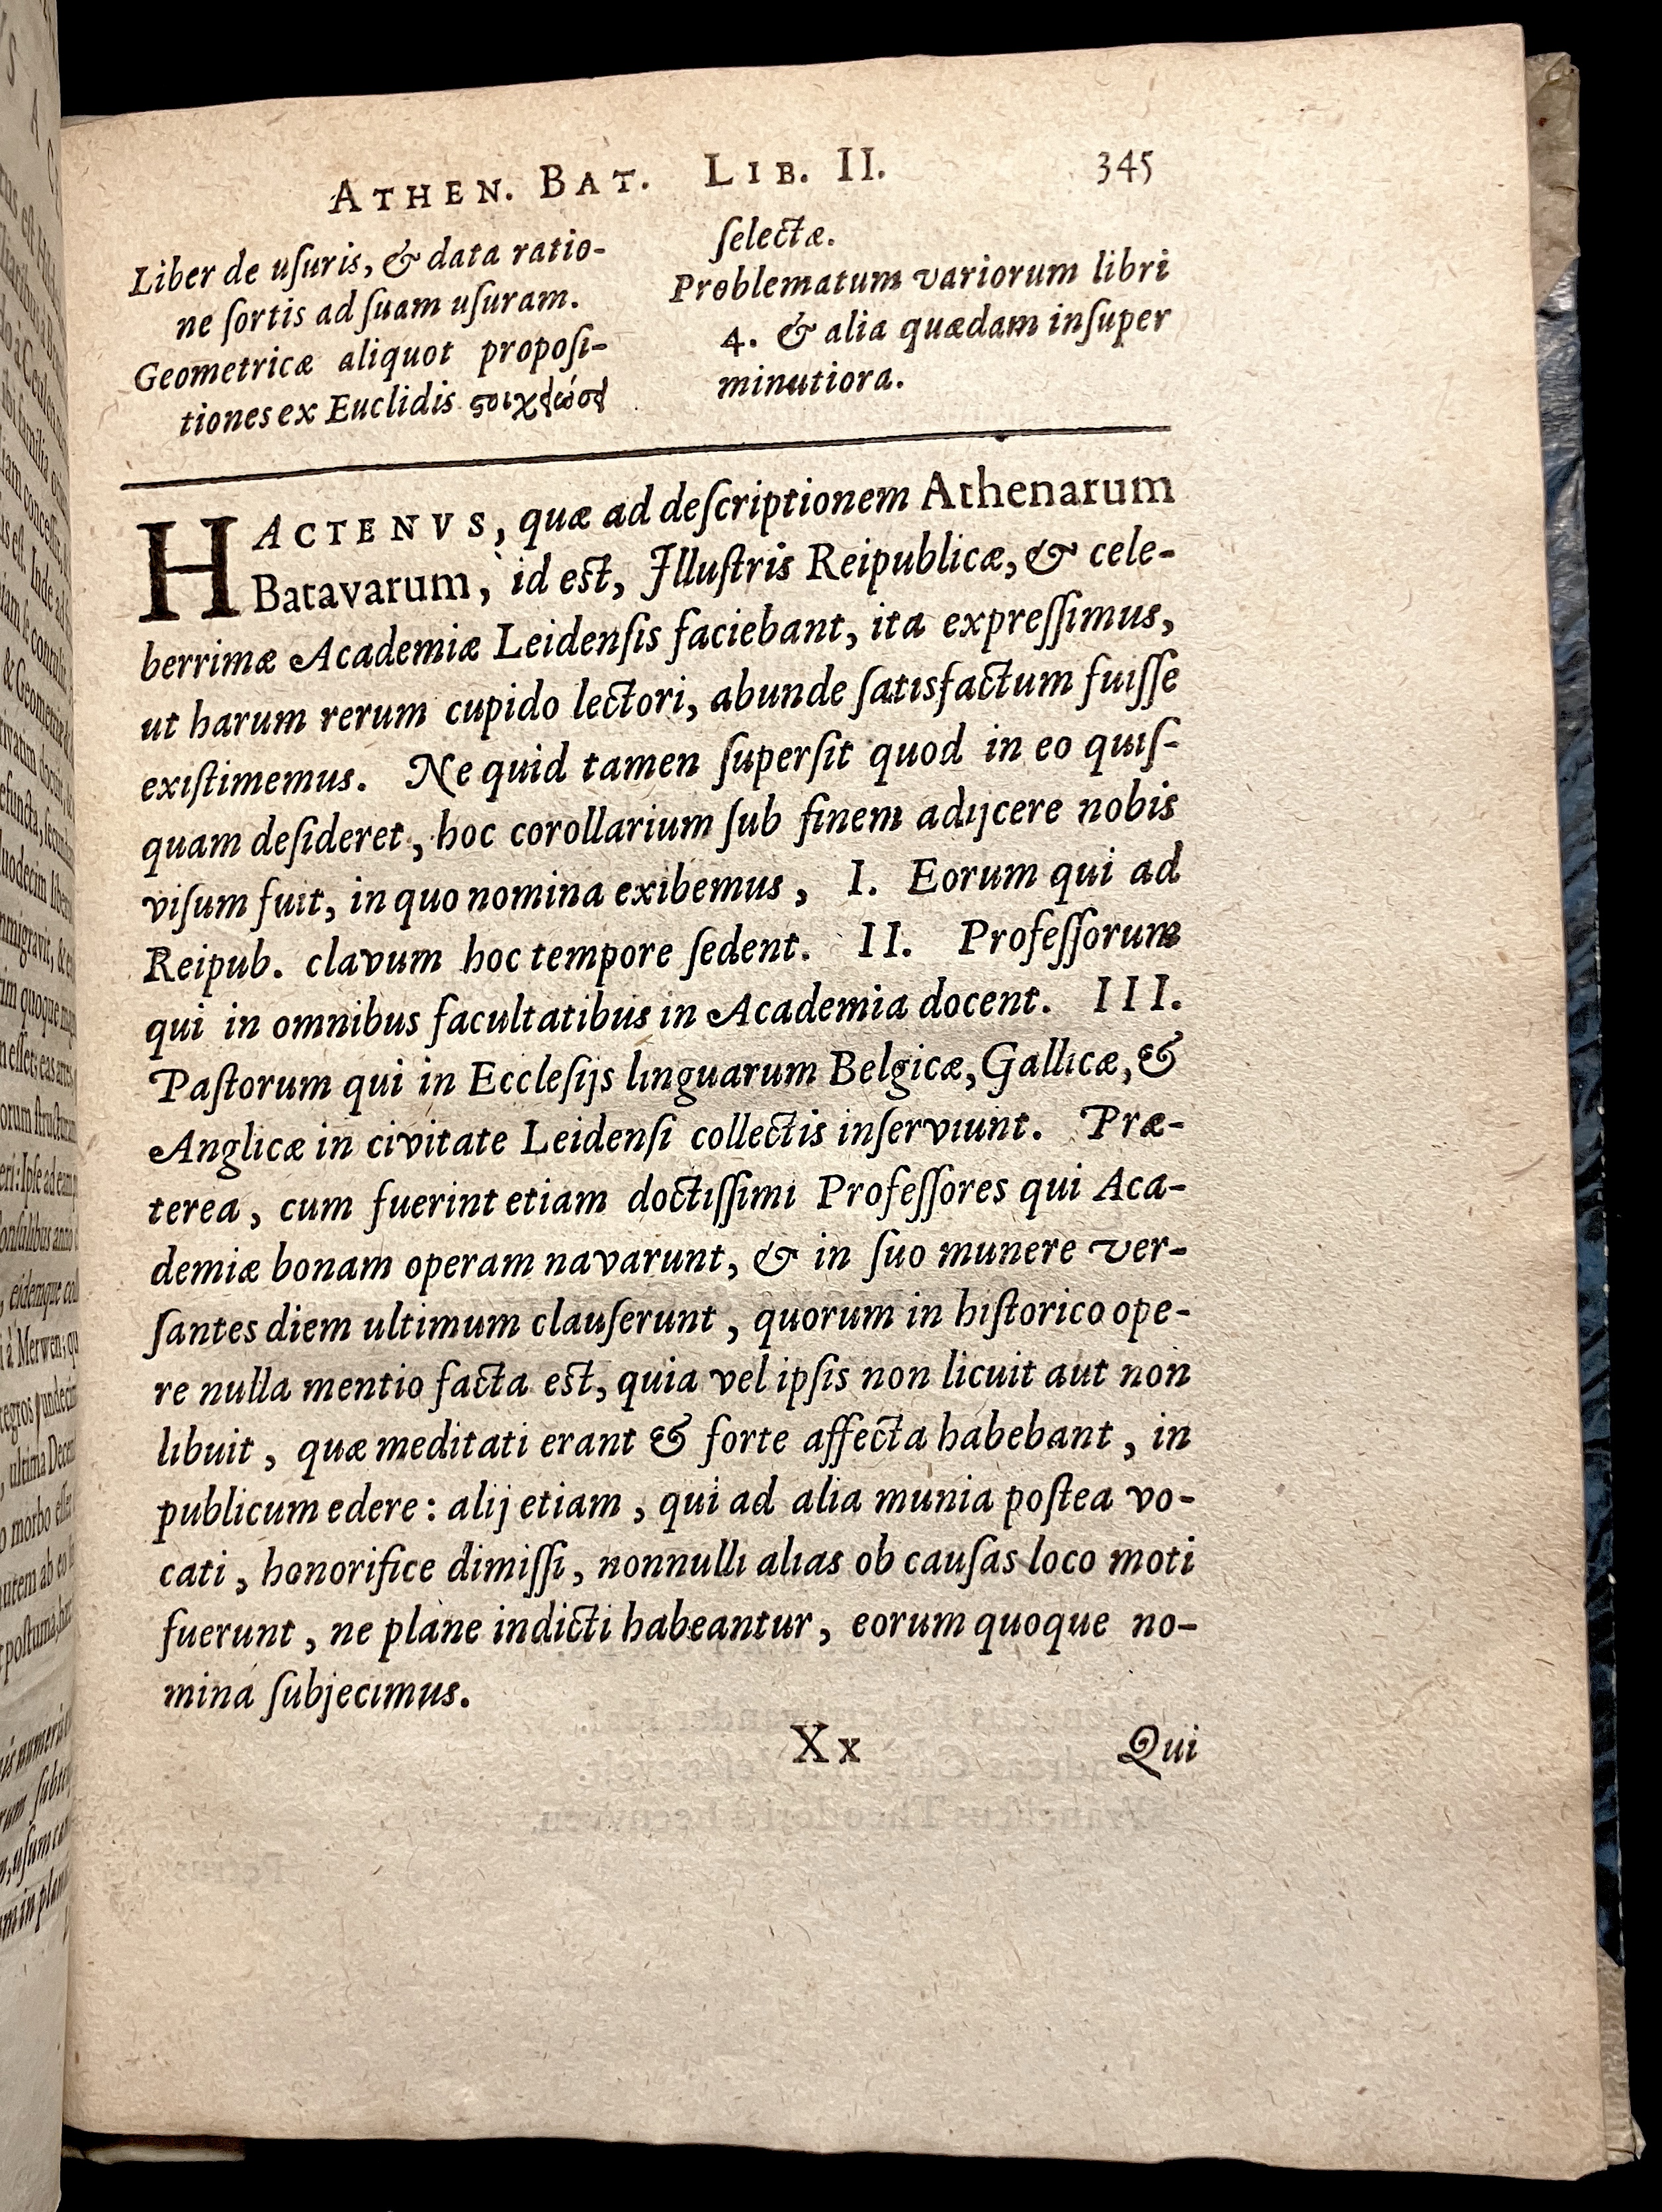 ATHEN. BAT. LIB. II. 345
Liber de uſuris, & data ratio-
ne ſortis ad ſuam uſuram.
Geometricæ aliquot propoſi-
tiones ex Euclidis
ſelectæ.
Problematum variorum libri
4. & alia quædam inſuper
minutiora.
HACTENVS, quæ ad deſcriptionem Athenarum
Batavarum, id est, Illuſtris Reipublicæ, & cele-
berrimæ Academiæ Leidenſis faciebant, ita expreſſimus,
ut harum rerum cupido lectori, abunde ſatisfactum fuiſſe
exiſtimemus. Ne quid tamen ſuperſit quod in eo quiſ-
quam deſideret, hoc corollarium ſub finem adijcere nobis
viſum fuit, in quo nomina exibemus, I. Eorum qui ad
Reipub. clavum hoc tempore ſedent. II. Profeſſorum
qui in omnibus facultatibus in Academia docent. III.
Paſtorum qui in Eccleſijs linguarum Belgicæ, Gallicæ, &
Anglicæ in civitate Leidenſi collectis inſerviunt. Præ-
terea, cum fuerint etiam doctiſſimi Profeſſores qui Aca-
demiæ bonam operam navarunt, & in ſuo munere ver-
ſantes diem ultimum clauſerunt, quorum in hiſtorico ope-
re nulla mentio facta est, quia vel ipſis non licuit aut non
libuit, quæ meditati erant & forte affecta habebant, in
publicum edere: alij etiam, qui ad alia munia poſtea vo-
cati, honorifice dimiſſi, nonnulli alias ob cauſas loco moti
fuerunt, ne plane indicti habeantur, eorum quoque no-
mina ſubjecimus.
Xx Qui